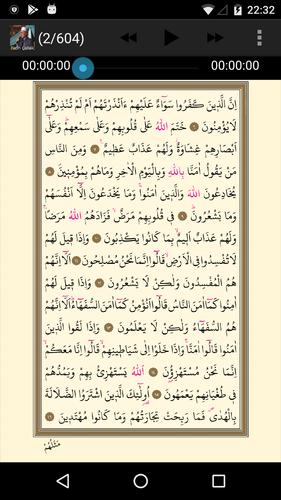 22:32
(2/604)
00:00:00 00:00:00
اِنَّ الَّذ۪ينَ كَفَرُوا سَوَٓاءٌ عَلَيْهِمْ ءَاَنْذَرْتَهُمْ اَمْ لَمْ تُنْذِرْهُمْ
لَا يُؤْمِنُونَ ٦ خَتَمَ اللّٰهُ عَلٰى قُلُوبِهِمْ وَعَلٰى سَمْعِهِمْ وَعَلٰٓى
اَبْصَارِهِمْ غِشَاوَةٌ وَلَهُمْ عَذَابٌ عَظ۪يمٌ ٧ وَمِنَ النَّاسِ
مَنْ يَقُولُ اٰمَنَّا بِاللّٰهِ وَبِالْيَوْمِ الْاٰخِرِ وَمَا هُمْ بِمُؤْمِن۪ينَ ٨
يُخَادِعُونَ اللّٰهَ وَالَّذ۪ينَ اٰمَنُوا وَمَا يَخْدَعُونَ اِلَّٓا اَنْفُسَهُمْ
وَمَا يَشْعُرُونَ ٩ ف۪ي قُلُوبِهِمْ مَرَضٌ فَزَادَهُمُ اللّٰهُ مَرَضًا
وَلَهُمْ عَذَابٌ اَل۪يمٌ بِمَا كَانُوا يَكْذِبُونَ ١٠ وَاِذَا ق۪يلَ لَهُمْ
لَا تُفْسِدُوا فِي الْاَرْضِ قَالُٓوا اِنَّمَا نَحْنُ مُصْلِحُونَ ١١ اَلَٓا اِنَّهُمْ
هُمُ الْمُفْسِدُونَ وَلٰكِنْ لَا يَشْعُرُونَ ١٢ وَاِذَا ق۪يلَ لَهُمْ
اٰمِنُوا كَمَٓا اٰمَنَ النَّاسُ قَالُٓوا اَنُؤْمِنُ كَمَٓا اٰمَنَ السُّفَهَٓاءُ اَلَٓا اِنَّهُمْ
هُمُ السُّفَهَٓاءُ وَلٰكِنْ لَا يَعْلَمُونَ ١٣ وَاِذَا لَقُوا الَّذ۪ينَ
اٰمَنُوا قَالُٓوا اٰمَنَّا وَاِذَا خَلَوْا اِلٰى شَيَاط۪ينِهِمْ قَالُٓوا اِنَّا مَعَكُمْ
اِنَّمَا نَحْنُ مُسْتَهْزِؤُ۫نَ ١٤ اَللّٰهُ يَسْتَهْزِئُ بِهِمْ وَيَمُدُّهُمْ
ف۪ي طُغْيَانِهِمْ يَعْمَهُونَ ١٥ اُو۬لٰٓئِكَ الَّذ۪ينَ اشْتَرَوُا الضَّلَالَةَ
بِالْهُدٰى فَمَا رَبِحَتْ تِجَارَتُهُمْ وَمَا كَانُوا مُهْتَد۪ينَ ١٦
مَثَلُهُمْ